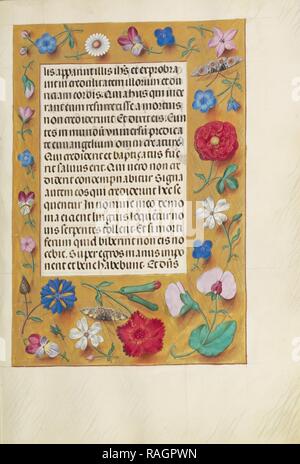 lis apparuit illis ihs et exprobra
uit incredulitatem illorum et
tiam cordis. Quia his qui uide
rant eum resurrexisse a mortuis
non crediderut. Et dixit eis. Eun
tes in mundū uniuersū predicate
euangelium omni creature
Qui crediderit et baptizatus fue
rit saluus erit. Qui uero non cre
diderit contempnabitur Signa
autem eos qui crediderint hec se
quentur. In nomine meo demo
nia eicient linguis loquentur no
uis serpentes tollent et si morti
ferum quid biberint non eis no
cebit. Super egros manus impo
nent et bene habebunt. Et dns
alamy stock photo
RAGPWN